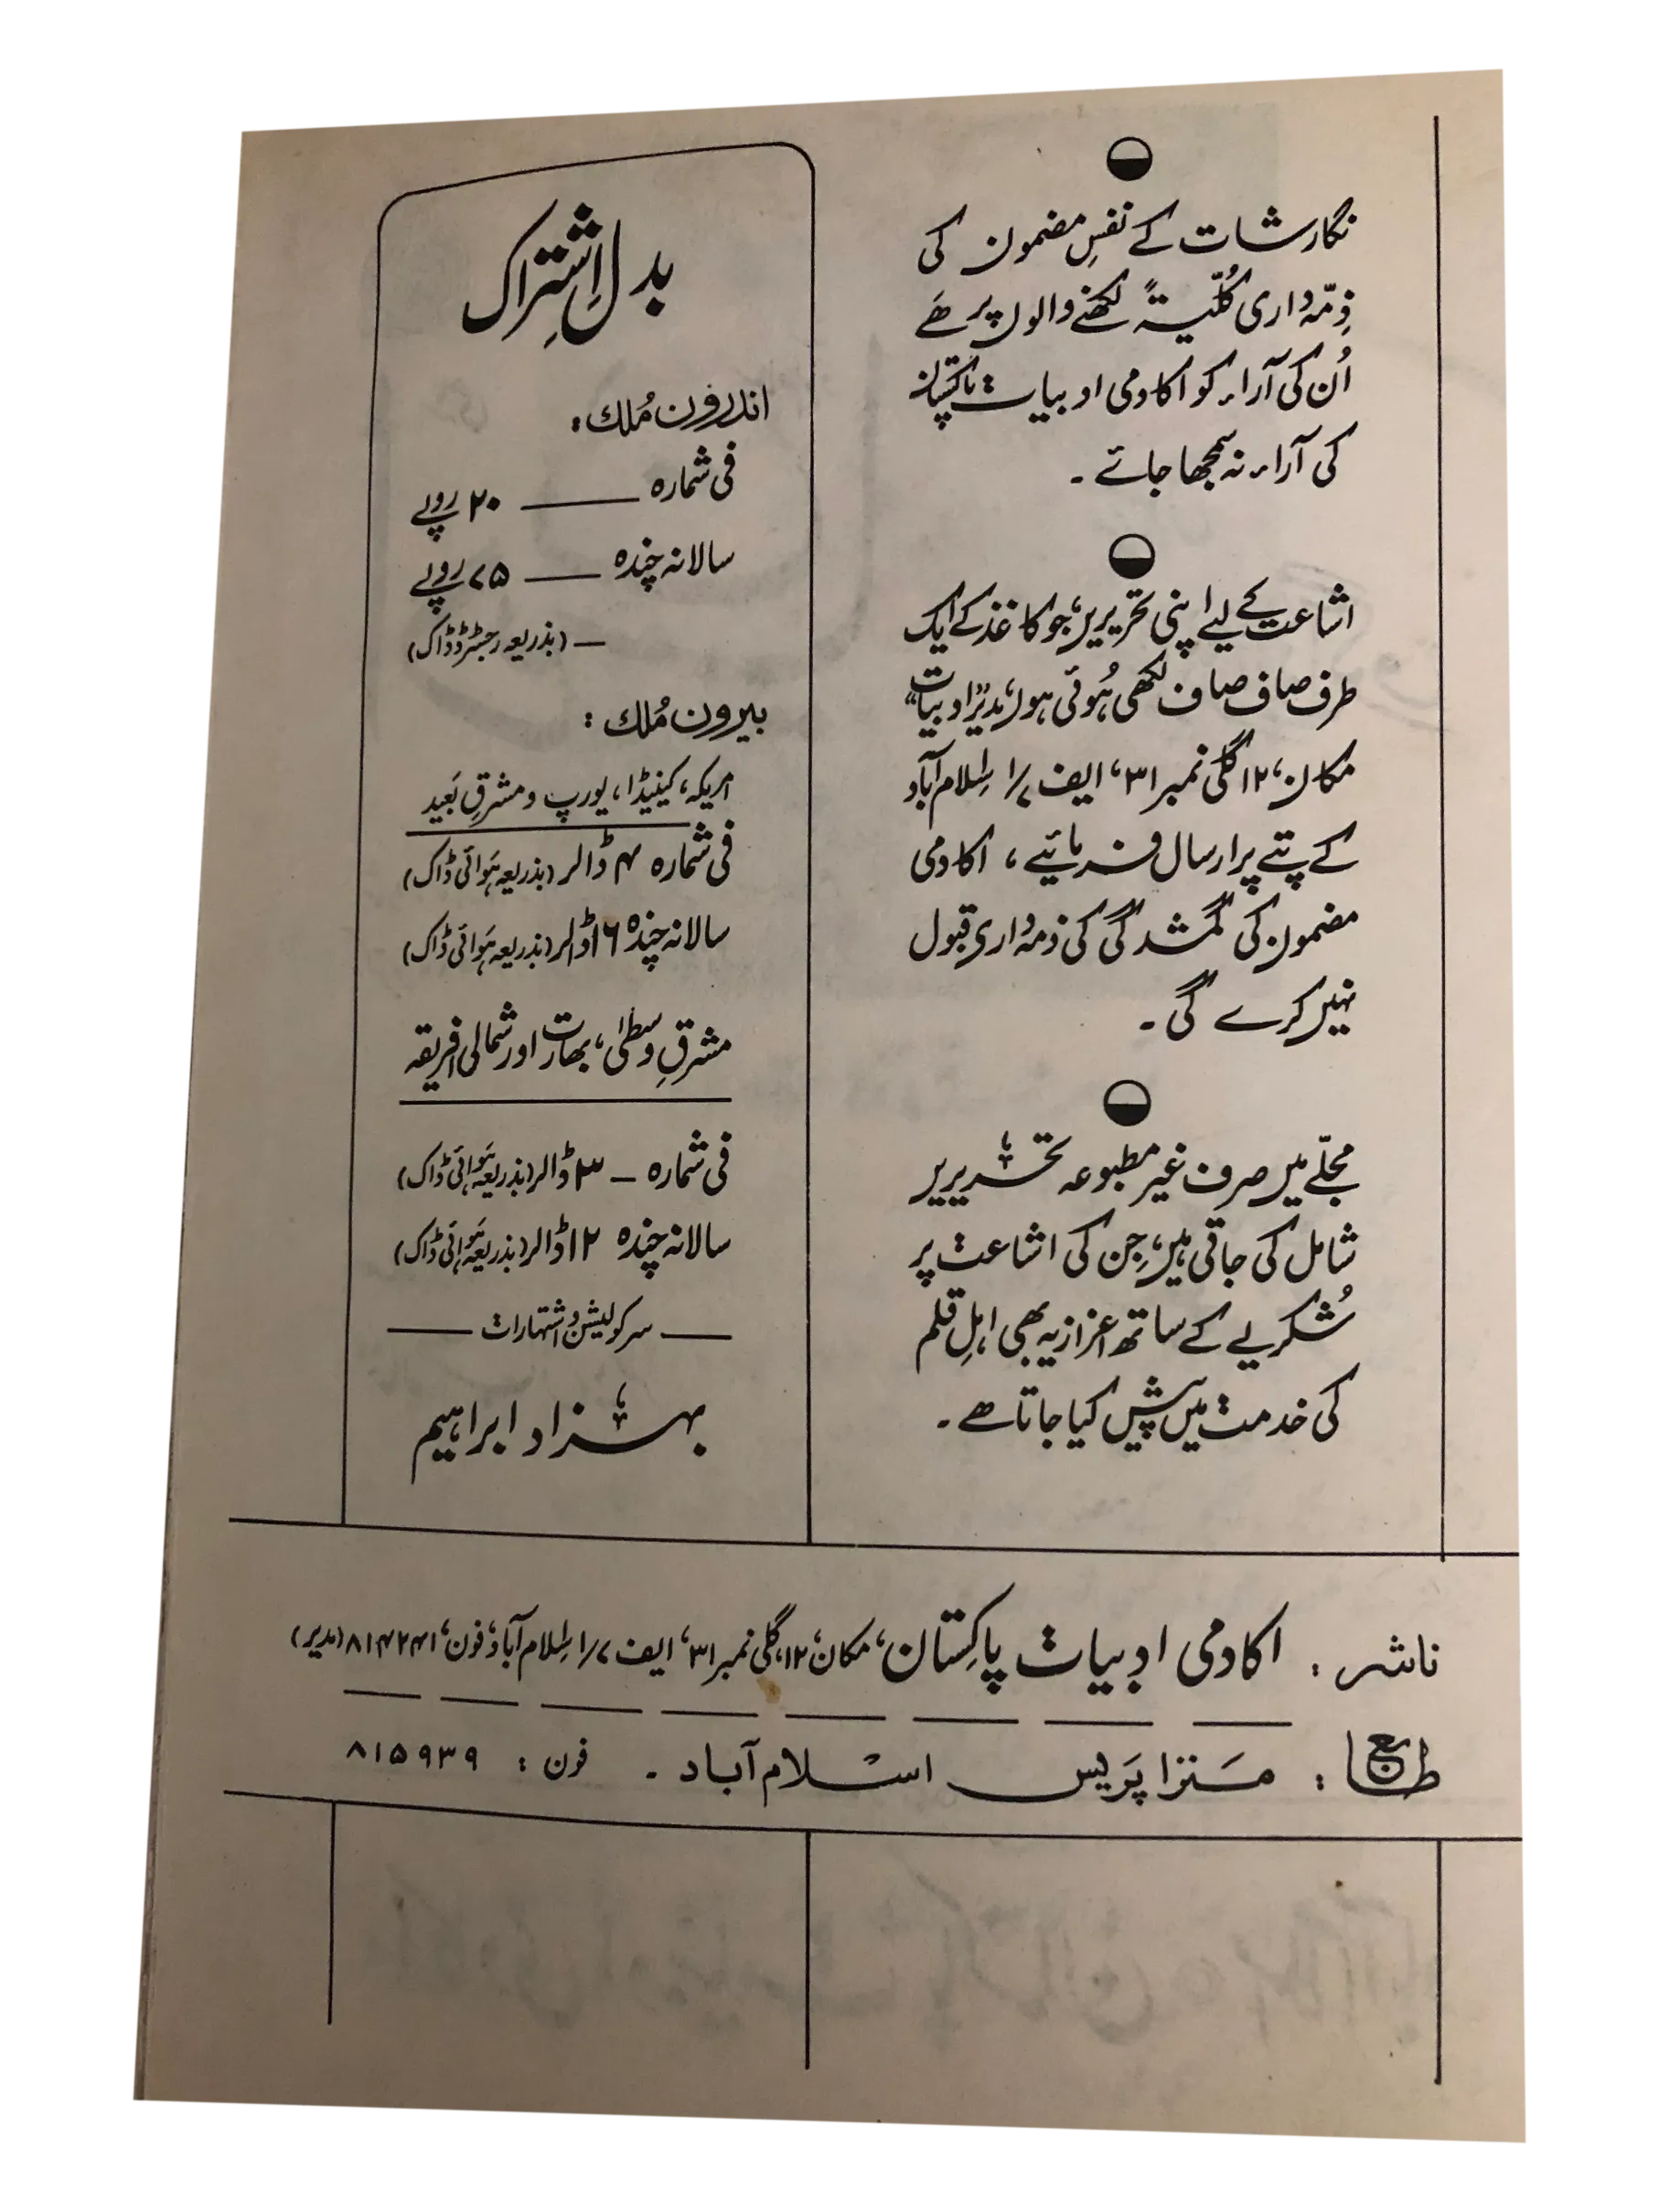 نگارشات کے نفسِ مضمون کی
ذِمّہ داری کُلّیۃً لکھنے والوں پر ھے
اُن کی آراء کو اکادمی ادبیات پاکستان
کی آراء نہ سمجھا جائے ۔
اشاعت کے لیے اپنی تحریریں، جو کاغذ کے ایک
طرف صاف صاف لکھی ہُوئی ہوں، مدیر "ادبیات"
مکان، ۱۲ گلی نمبر ۳۱، ایف ۷/۱ اِسلام آباد
کے پتے پر ارسال فرمائیے ، اکادمی
مضمون کی گمشدگی کی ذمہ داری قبول
نہیں کرے گی ۔
مجلّے میں صرف غیر مطبوعہ تحریریں
شامل کی جاتی ہیں، جِن کی اشاعت پر
شُکریے کے ساتھ اعزازیہ بھی اہلِ قلم
کی خدمت میں پیش کیا جاتا ھے ۔
بدل اِشتِراک
اندرون مُلک :
فی شمارہ ــــــ ۲۰ روپے
سالانہ چندہ ــــ ۷۵ روپے
ــ (بذریعہ رجسٹرڈ ڈاک)
بیرون مُلک :
امریکہ، کینیڈا، یورپ و مشرقِ بَعید
فی شمارہ ۴ ڈالر (بذریعہ ہَوائی ڈاک)
سالانہ چندہ ۱۶ ڈالر (بذریعہ ہَوائی ڈاک)
مشرقِ وسطیٰ، بھارت اور شمالی افریقہ
فی شمارہ ــ ۳ ڈالر (بذریعہ ہَوائی ڈاک)
سالانہ چندہ ۱۲ ڈالر (بذریعہ ہَوائی ڈاک)
ــــــ سرکولیشن و اشتہارات ــــــ
بہزاد ابراہیم
ناشر : اکادمی ادبیات پاکِستان، مکان، ۱۲، گلی نمبر ۳۱، ایف ۷/۱ اِسلام آباد، فون، ۸۱۴۲۴۱ (مدیر)
طابع : مَنزا پَریس اسلام آباد ۔ فون : ۸۱۵۹۳۹